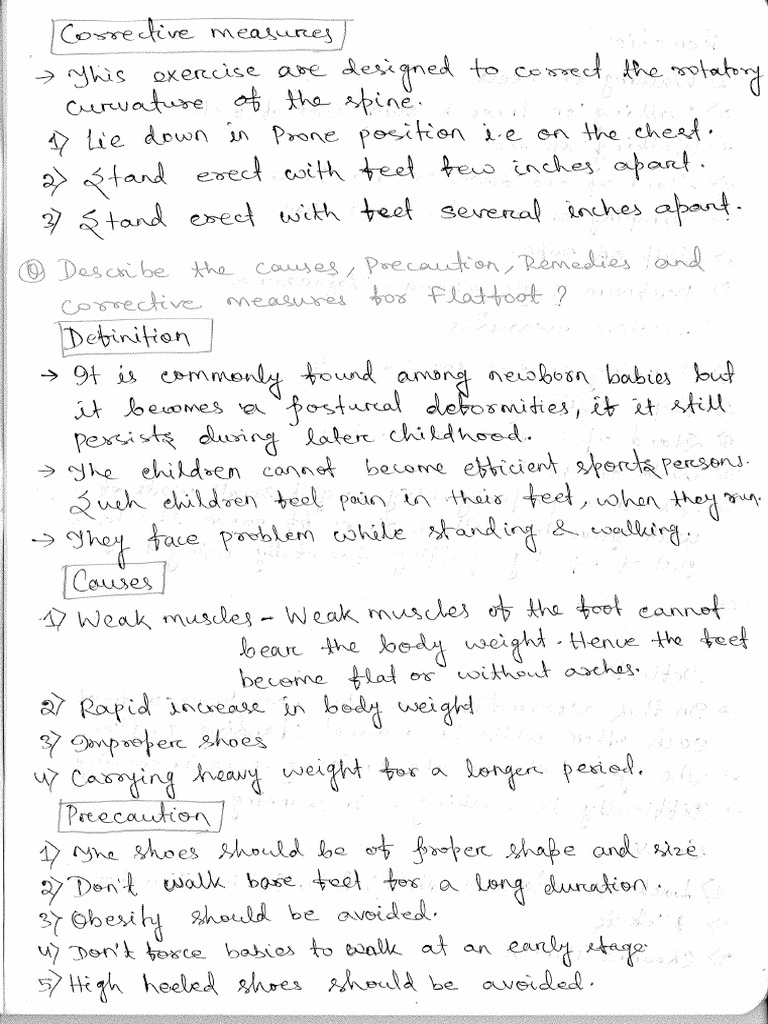 Corrective measures
→ This exercise are designed to correct the rotatory
curvature of the spine.
1) Lie down in Prone position i.e on the chest.
2) Stand erect with feet few inches apart.
3) Stand erect with feet several inches apart.
Q Describe the causes, Precaution, Remedies and
corrective measures for Flatfoot?
Definition
→ It is commonly found among newborn babies but
it becomes a postural deformities, if it still
persists during later childhood.
→ The children cannot become efficient sports persons.
Such children feel pain in their feet, when they run.
→ They face problem while standing & walking.
Causes
1) Weak muscles - Weak muscles of the foot cannot
bear the body weight. Hence the feet
become flat or without arches.
2) Rapid increase in body weight
3) Improper shoes
4) Carrying heavy weight for a longer period.
Precaution
1) The shoes should be of proper shape and size.
2) Don't walk bare feet for a long duration.
3) Obesity should be avoided.
4) Don't force babies to walk at an early stage
5) High heeled shoes should be avoided.